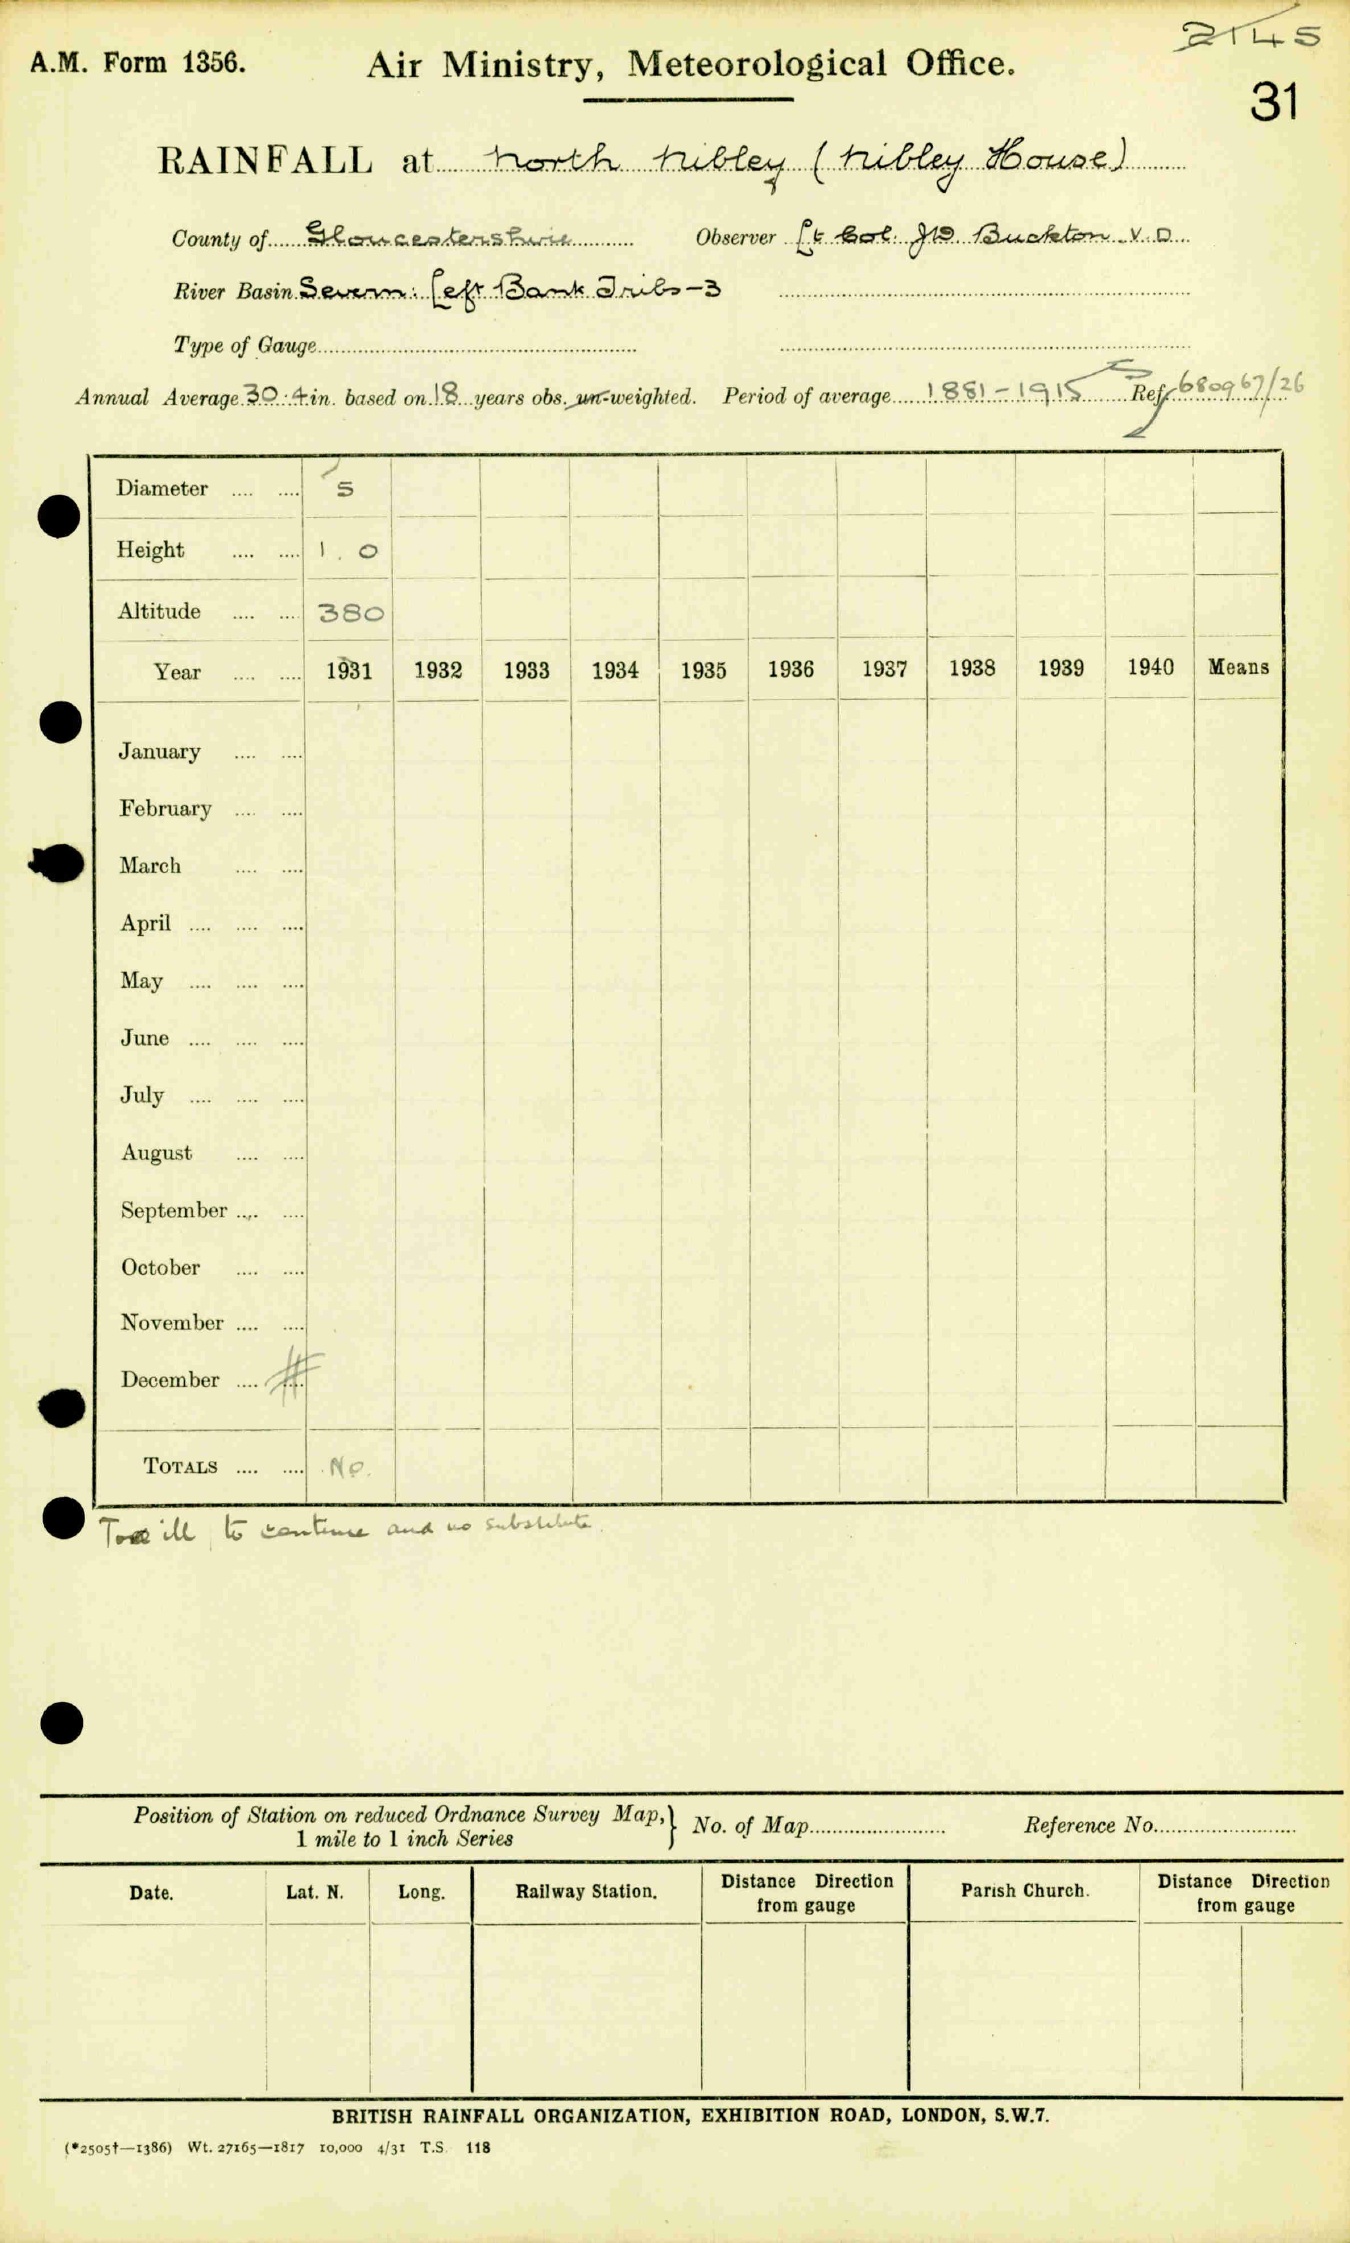 2145
A.M. Form 1356. Air Ministry, Meteorological Office.
31
RAINFALL at North Nibley (Nibley House)
County of Gloucestershire Observer Lt Col. J W Buckton V.D.
River Basin Severn: Left Bank Tribs-3
Type of Gauge
Annual Average 30.4 in. based on 18 years obs. un-weighted. Period of average 1881-1915 Ref. 680967/26
Diameter .... .... 5
Height .... .... 1.0
Altitude .... .... 380
Year .... .... 1931 1932 1933 1934 1935 1936 1937 1938 1939 1940 Means
January .... ....
February .... ....
March .... ....
April .... .... ....
May .... .... ....
June .... .... ....
July .... .... ....
August .... ....
September .... ....
October .... ....
November .... ....
December .... ....
TOTALS .... .... No.
Too ill to continue and no substitute.
Position of Station on reduced Ordnance Survey Map, } No. of Map Reference No.
1 mile to 1 inch Series
Date. Lat. N. Long. Railway Station. Distance Direction from gauge Parish Church. Distance Direction from gauge
BRITISH RAINFALL ORGANIZATION, EXHIBITION ROAD, LONDON, S.W.7.
(*2505†—1386) Wt. 27165—1817 10,000 4/31 T.S. 118